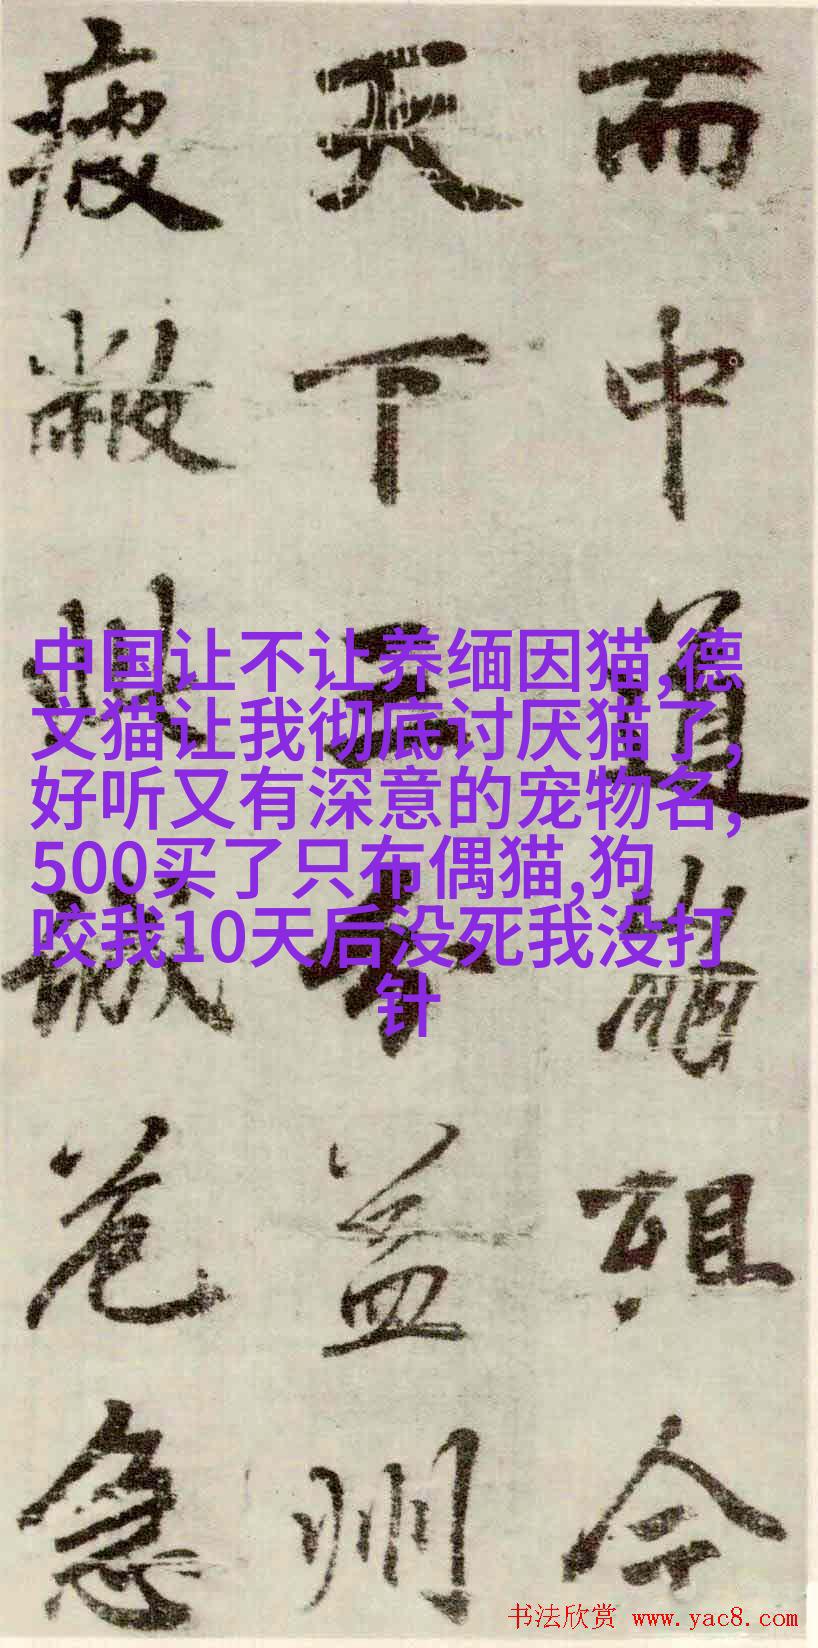 而中道崩殂今
天下三分益州
疲敝此誠危急
中国让不让养缅因猫,德
文猫让我彻底讨厌猫了,
好听又有深意的宠物名,
500买了只布偶猫,狗
咬我10天后没死我没打
针
书法欣赏 www.yac8.com